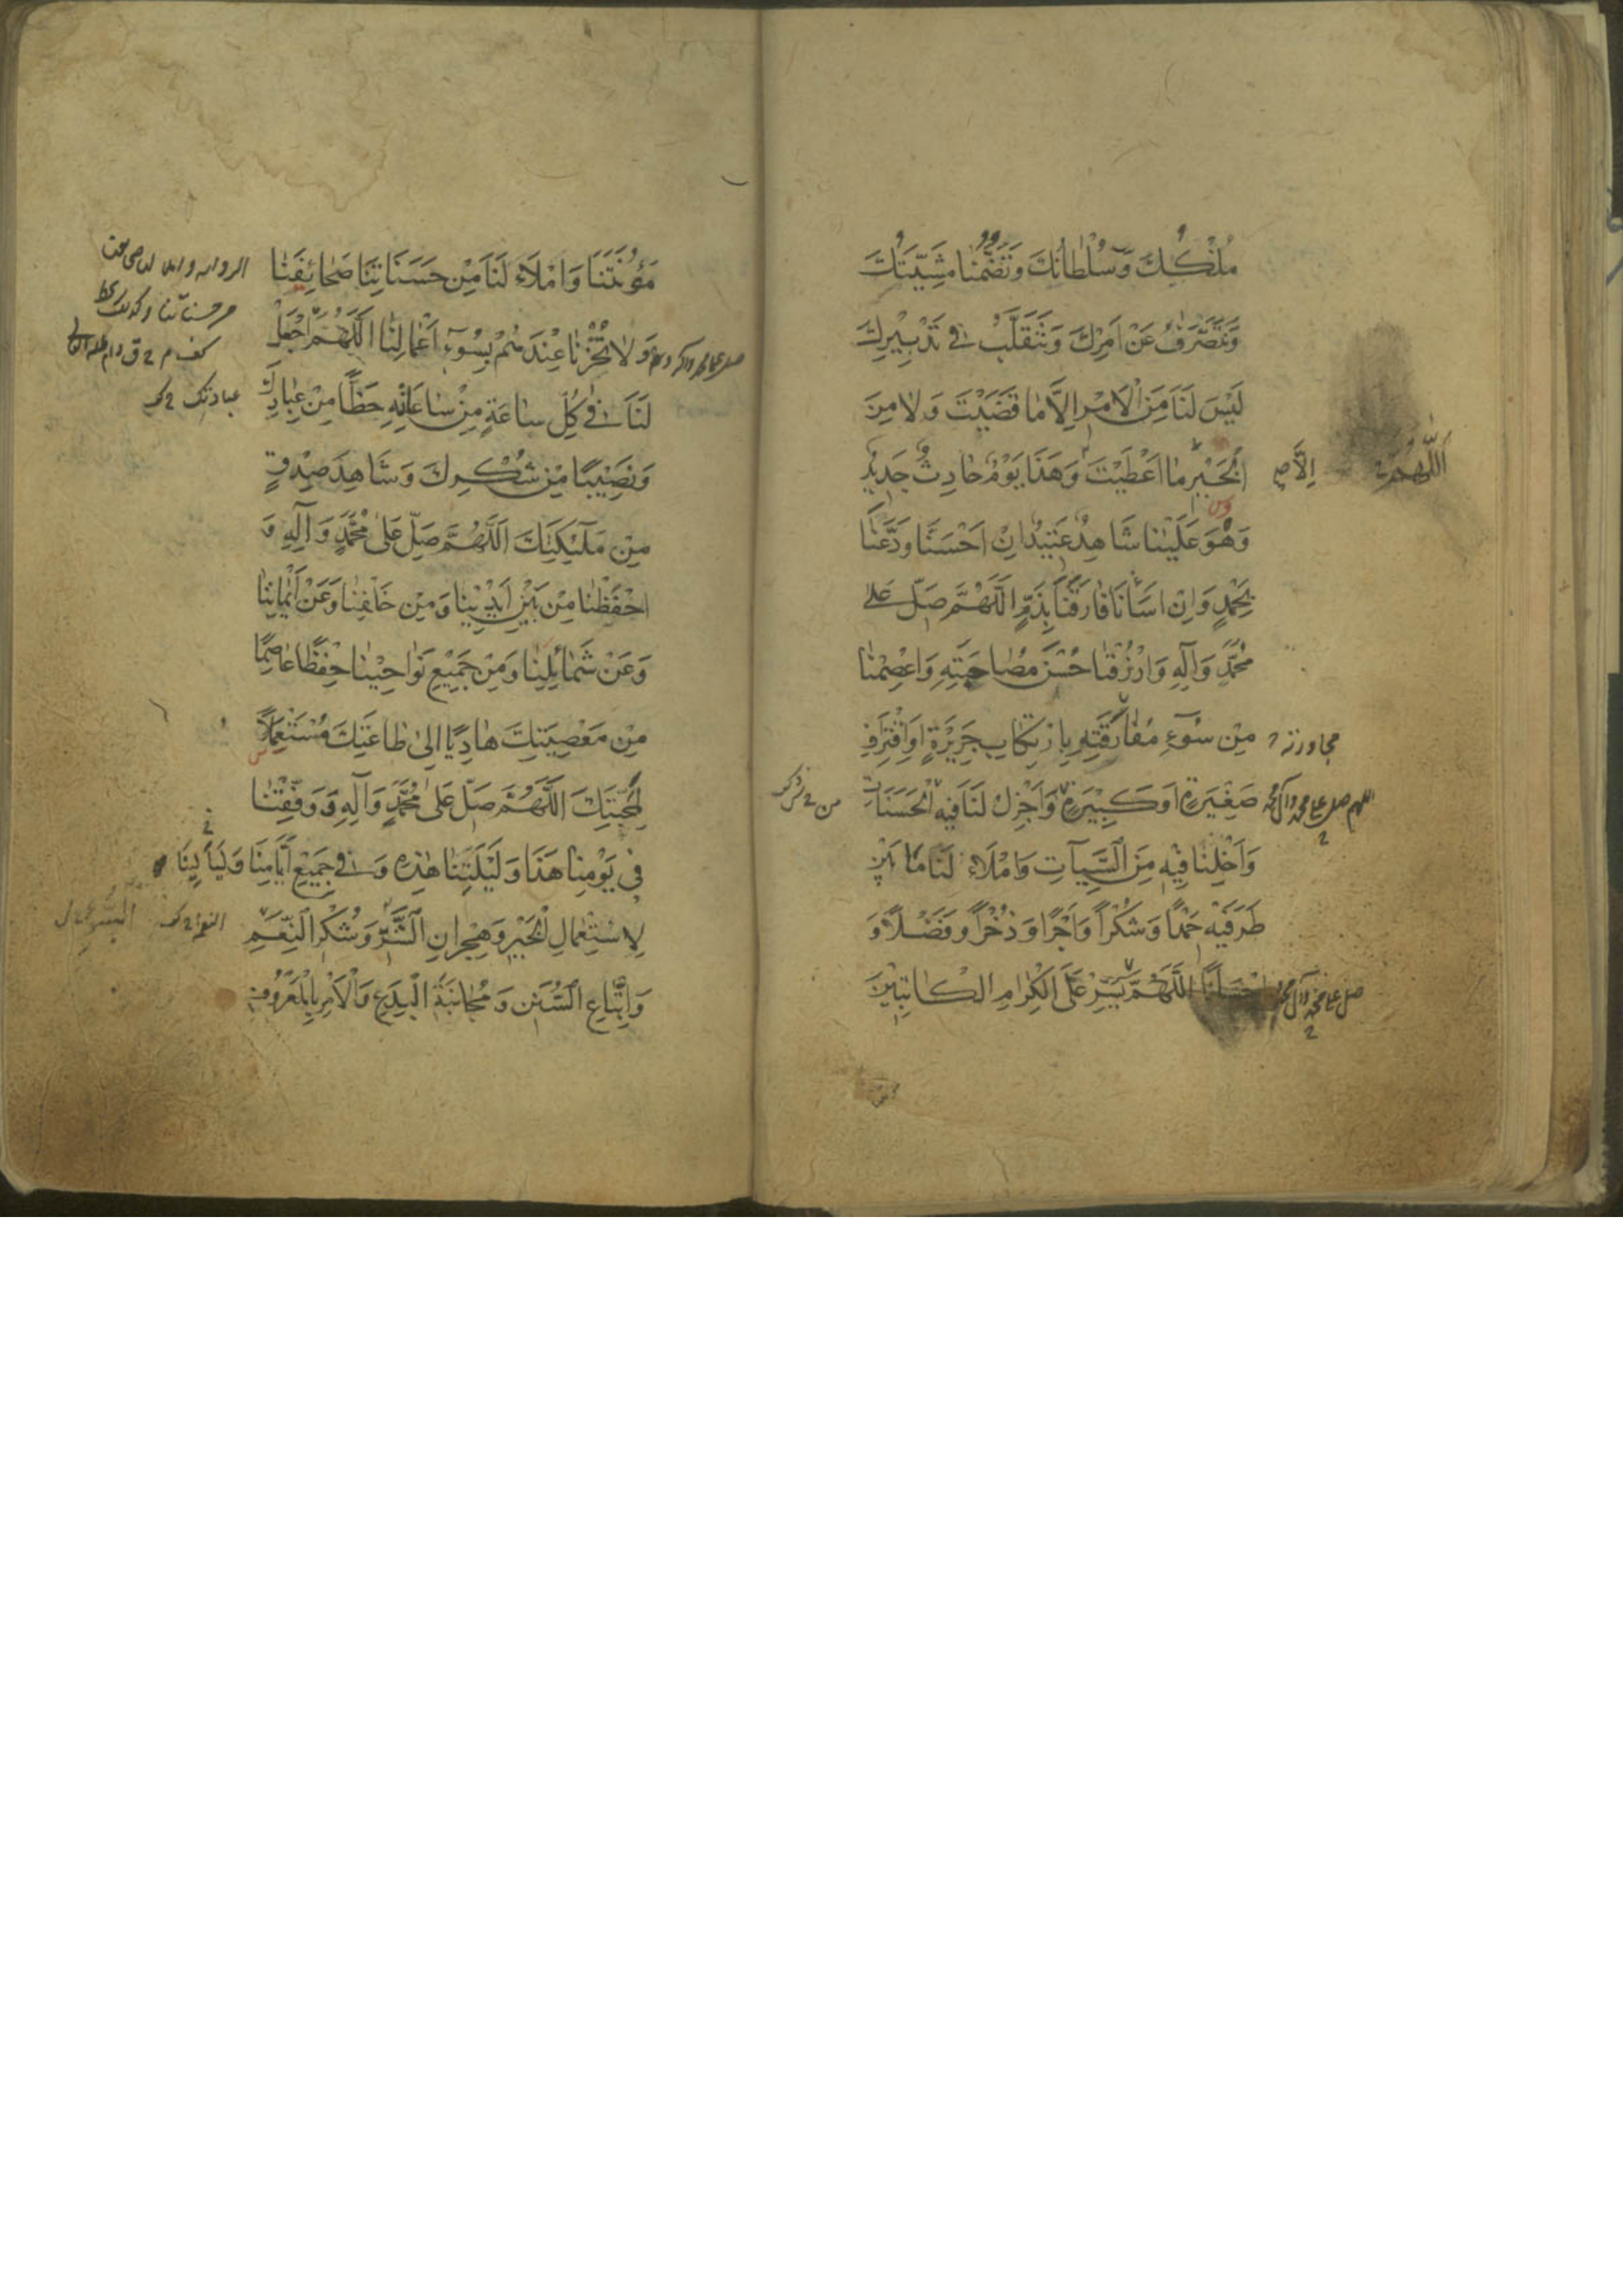 مُلْكُكَ وَسُلْطَانُكَ وَتَضُمُّنَا مَشِيَّتُكَ
وَنَتَصَرَّفُ عَنْ اَمْرِكَ وَنَتَقَلَّبُ فِى تَدْبِيْرِكَ
لَيْسَ لَنَا مِنَ الْاَمْرِ اِلَّا مَا قَضَيْتَ وَلَا مِنَ
الْخَيْرِ مَا اَعْطَيْتَ وَهَذَا يَوْمٌ حَادِثٌ جَدِيْدٌ
اِلَّا صح
اَللّٰهُمَّ
وَهُوَ عَلَيْنَا شَاهِدٌ عَتِيْدٌ اِنْ اَحْسَنَّا وَدَّعَنَا
بِحَمْدٍ وَاِنْ اَسَأْنَا فَارَقَنَا بِذَمٍّ اَللّٰهُمَّ صَلِّ عَلٰى
مُحَمَّدٍ وَآلِهِ وَارْزُقْنَا حُسْنَ مُصَاحَبَتِهِ وَاعْصِمْنَا
مِنْ سُوْٓءِ مُفَارَقَتِهِ بِارْتِكَابِ جَرِيْرَةٍ اَوِ اقْتِرَافِ
مجاورته
صَغِيْرَةٍ اَوْ كَبِيْرَةٍ وَاَجْزِلْ لَنَا فِيهِ الْحَسَنَاتِ
اللهم صل على محمد وآل محمد
من
وَاَخْلِنَا فِيْهِ مِنَ السَّيِّآتِ وَامْلَاءْ لَنَا مَا بَيْنَ
طَرَفَيْهِ حَمْدًا وَشُكْرًا وَاَجْرًا وَذُخْرًا وَفَضْلًا وَ
اِحْسَانًا اَللّٰهُمَّ يَسِّرْ عَلَى الْكِرَامِ الْكَاتِبِيْنَ
صل على محمد وآل محمد
مَؤُنَتَنَا وَامْلَاءْ لَنَا مِنْ حَسَنَاتِنَا صَحَائِفَنَا
وَلَا تُخْزِنَا عِنْدَهُمْ بِسُوْٓءِ اَعْمَالِنَا اَللّٰهُمَّ اجْعَلْ
لَنَا فِى كُلِّ سَاعَةٍ مِنْ سَاعَاتِهِ حَظًّا مِنْ عِبَادِكَ
عبادتك
وَنَصِيْبًا مِنْ شُكْرِكَ وَشَاهِدَ صِدْقٍ
مِنْ مَلٰٓئِكَتِكَ اَللّٰهُمَّ صَلِّ عَلٰى مُحَمَّدٍ وَآلِهِ وَ
احْفَظْنَا مِنْ بَيْنِ اَيْدِيْنَا وَمِنْ خَلْفِنَا وَعَنْ اَيْمَانِنَا
وَعَنْ شَمَائِلِنَا وَمِنْ جَمِيْعِ نَوَاحِيْنَا حِفْظًا عَاصِمًا
مِنْ مَعْصِيَتِكَ هَادِيًا اِلٰى طَاعَتِكَ مُسْتَعْمِلًا
لِمَحَبَّتِكَ اَللّٰهُمَّ صَلِّ عَلٰى مُحَمَّدٍ وَآلِهِ وَوَفِّقْنَا
فِى يَوْمِنَا هَذَا وَلَيْلَتِنَا هٰذِهِ وَفِى جَمِيْعِ اَيَّامِنَا وَلَيَالِينَا
لِاسْتِعْمَالِ الْخَيْرِ وَهِجْرَانِ الشَّرِّ وَشُكْرِ النِّعَمِ
وَاتِّبَاعِ السُّنَنِ وَمُجَانَبَةِ الْبِدَعِ وَالْاَمْرِ بِالْمَعْرُوْفِ